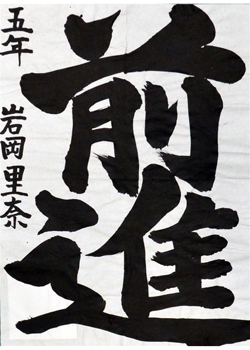 前進
五年 岩岡里奈